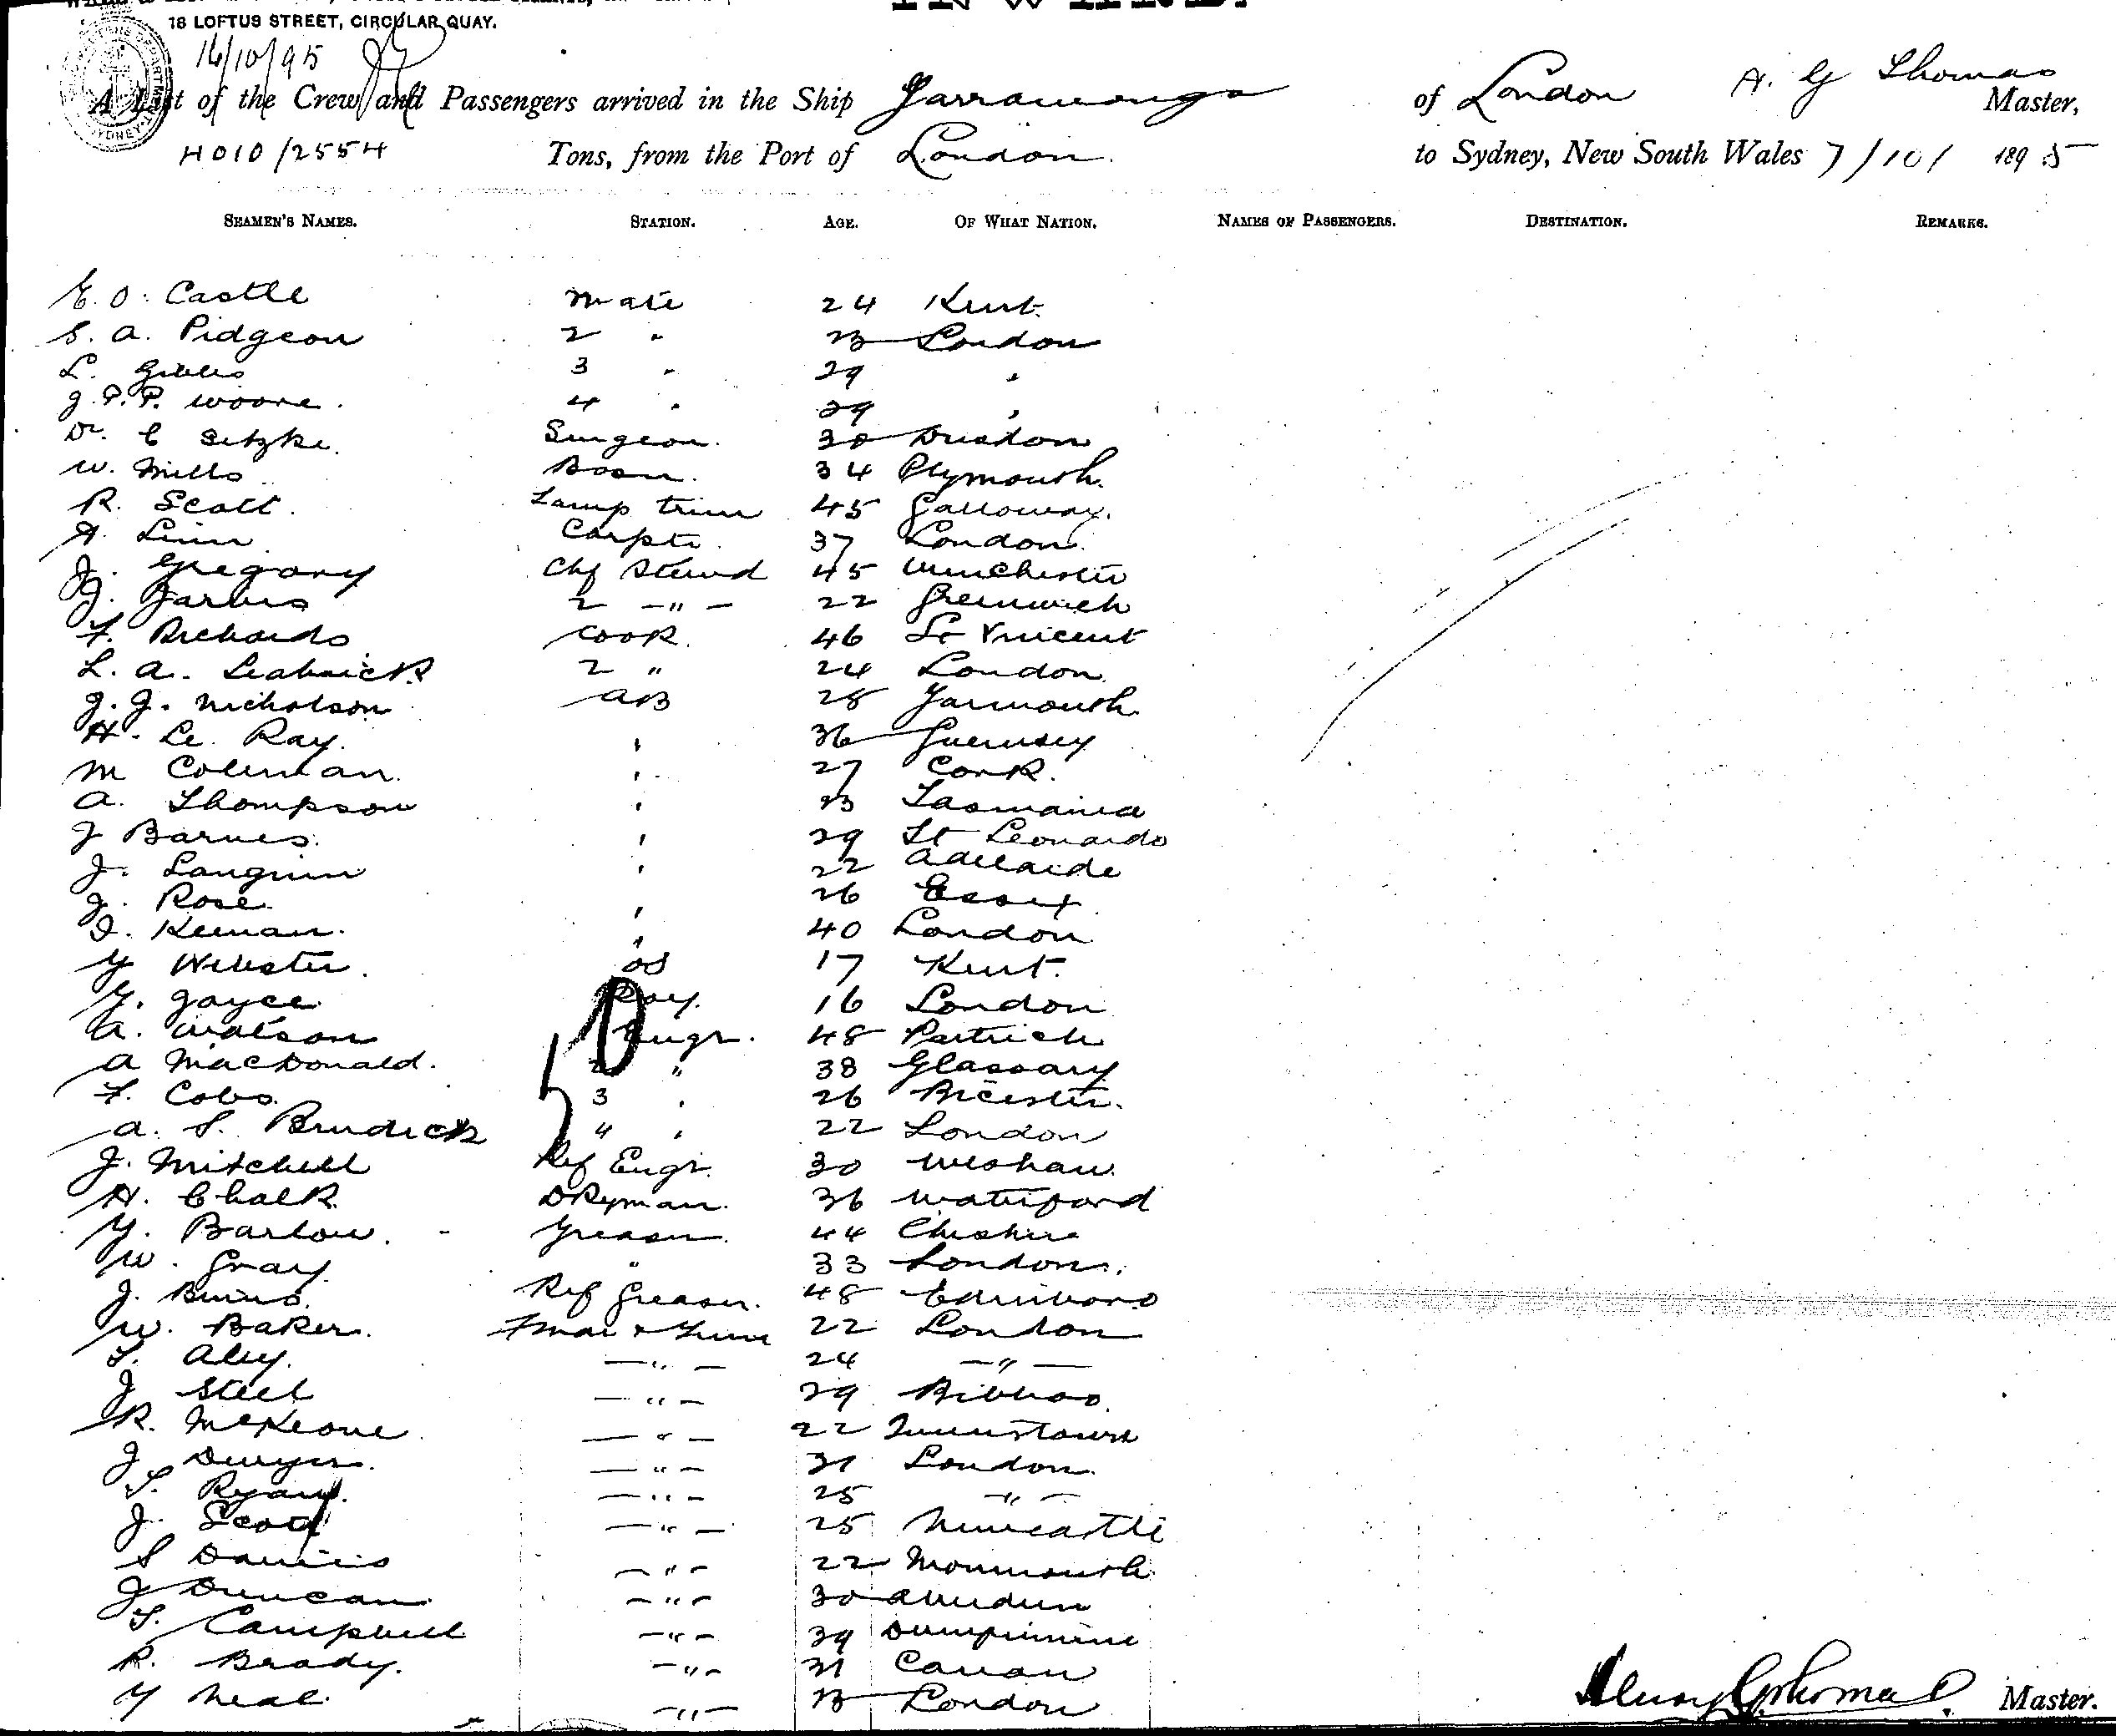 18 LOFTUS STREET, CIRCULAR QUAY.
16/10/95
A List of the Crew and Passengers arrived in the Ship Yarrawonga of London H. G Thomas Master,
4010/2554 Tons, from the Port of London. to Sydney, New South Wales 7/10/ 1895
SEAMEN'S NAMES. STATION. AGE. OF WHAT NATION. NAMES OF PASSENGERS. DESTINATION. REMARKS.
E. O. Castle Mate 24 Kent.
S. A. Pidgeon 2 " 23 London
L. Gibbs 3 " 29 "
J. P. P. Woore. 4 " 29 "
Dr. C Setzke. Surgeon. 30 Dresden
W. Mills Bosn. 34 Plymouth.
R. Scott. Lamp trim 45 Galloway.
A. Linn Carptr. 37 London.
J. Gregory Chf Stewd 45 Winchester
J. Jarvis 2 -"- 22 Greenwich
F. Richards Cook. 46 St Vincent
L. A. 2 " 24 London.
J. J. Nicholson AB 28 Yarmouth.
H. Le. Ray. " 36 Guernsey
M Coleman. " 27 Cork.
A. Thompson " 23 Tasmania
J Barnes. " 29 St Leonards
J. Langrin " 22 Adelaide
J. Rose. " 26 Essex
D. Keenan. " 40 London
G Webster. OS 17 Kent.
G. Joyce. Boy. 16 London
A. Watson Engr. 48 Partrick
A MacDonald. 2 " 38 Glassary
F. Cobs. 3 " 26 Bicester.
A. S. 4 " 22 London
J. Mitchell Ref Engr. 30 Wishaw.
H. Chalk. DKeyman. 36 Waterford
G. Barlow. Greaser. 44 Cheshire
W. Gray. " 33 London.
J. Burns. Ref Greaser. 48 Edinboro
W. Baker. Fman & Trim 22 London
T. Aley. -"- 24 -"-
J Steel -"- 29 Bilbao.
R. McKeone -"- 22 Queenstown
J Dwyer. -"- 31 London.
T. Ryan. -"- 25 -"-
J. Scott -"- 25 Newcastle
S Daniels -"- 22 Monmouth.
J Duncan -"- 30 Aberdeen
T. Campbell -"- 39
R. Brady. -"- 31 Cavan
G Neal. -"- 23 London
Henry G Thomas Master.